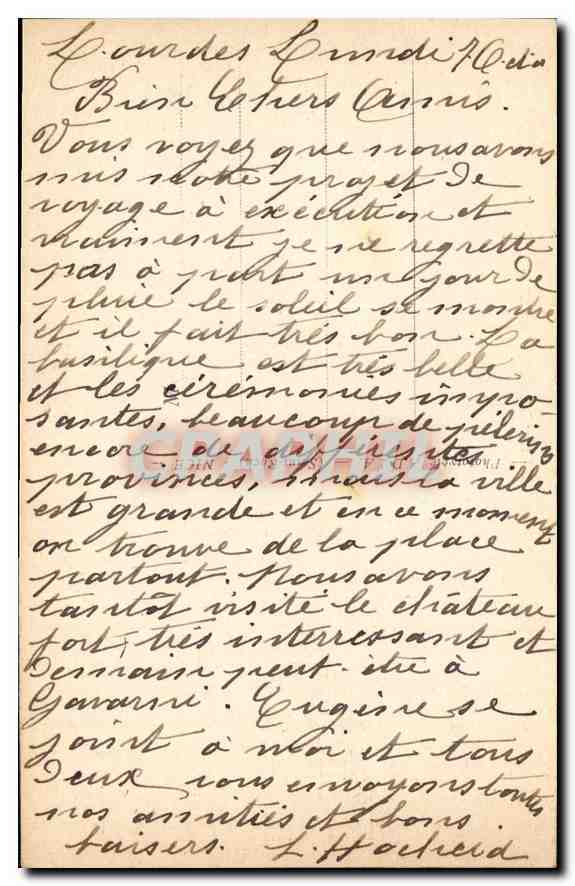 Lourdes Lundi 7 Oct
Bien Chers Amis.
Vous voyez que nous avons
mis notre projet de
voyage à exécution et
vraiment je ne regrette
pas à part un jour de
pluie le soleil se montre
et il fait très bon. La
basilique est très belle
et les cérémonies impo-
santes, beaucoup de pélerins
encore de différentes
provinces, mais la ville
est grande et en ce moment
on trouve de la place
partout. Nous avons
tantôt visité le château
fort, très interressant et
demain peut-être à
Gavarni. Eugène se
joint à moi et tous
deux vous envoyons toutes
nos amitiés et bons
baisers. L.
CPAPHIL
NICE